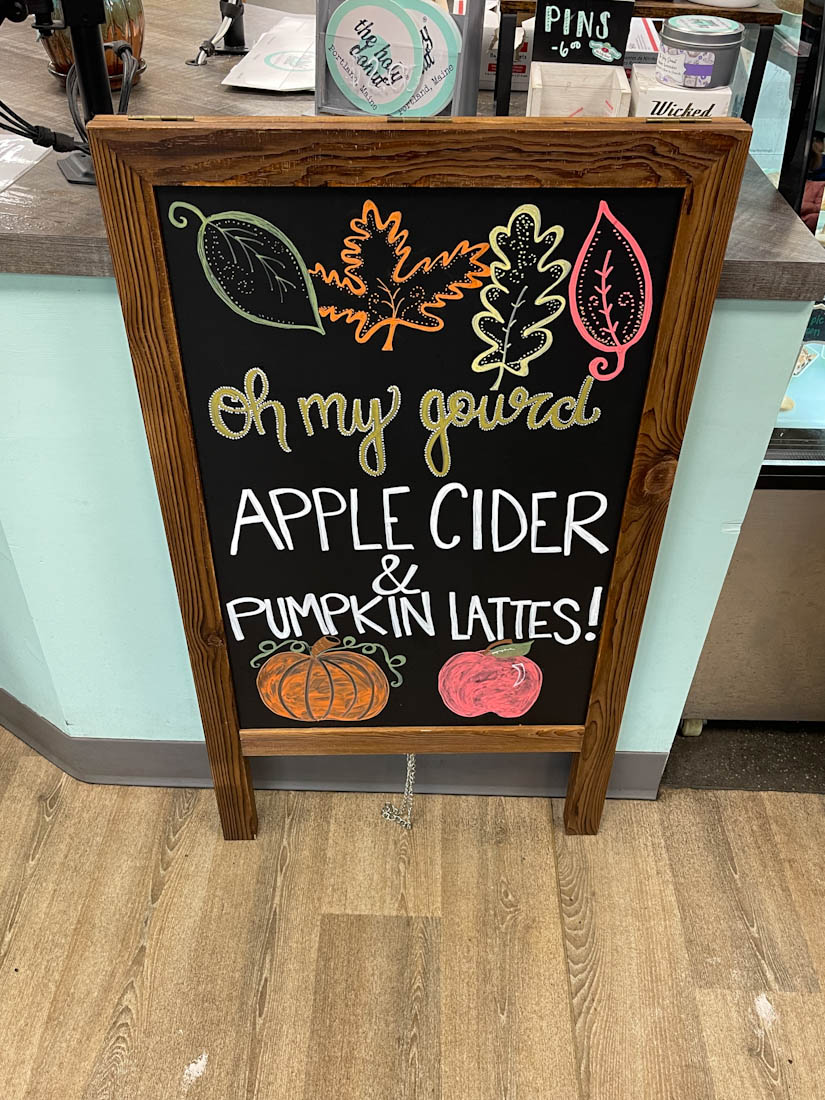 the holy
donut
Portland, Maine
Portland, Maine
PINS
Wicked
oh my gourd
APPLE CIDER
&
PUMPKIN LATTES!